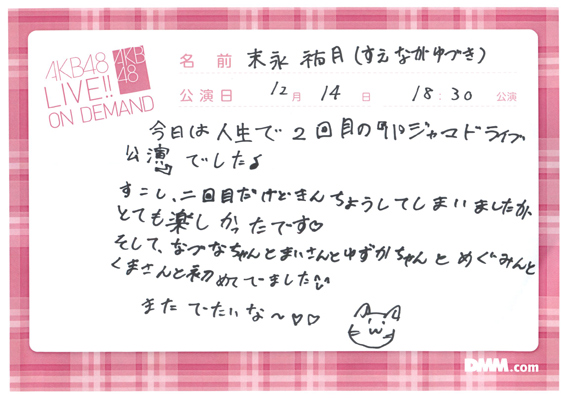 AKB48
LIVE!!
ON DEMAND
AKB
48
名前 末永 祐月(すえながゆづき)
公演日 12月 14日 18:30 公演
今日は人生で2回目のパジャマドライブ
公演でした♪
すこし、二回目だけどきんちょうしてしまいましたが、
とても楽しかったです♡
そして、なづなちゃんとまいさんとゆずかちゃんとめぐみんと
くまさんと初めてでました
またでたいな〜♡♡
DMM.com